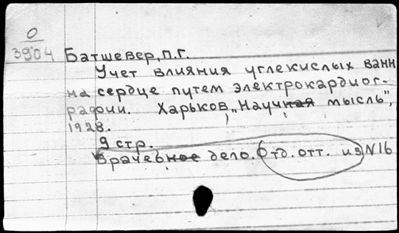 О
3904 Батшевер, П.Г.
Учет влияния углекислых ванн
на сердце путем электрокардиог-
рафии. Харьков, „Научная мысль",
1928.
9 стр.
Врачебное дело. Отд. отт. из N16